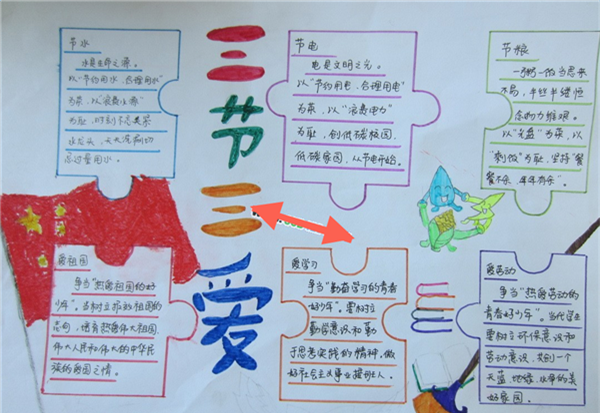 三节三爱
节水
水是生命之源。
以“节约用水,合理用水”
为荣,以“浪费水源”
为耻,时刻不忘关紧
水龙头,
用水。
节电
电是文明之光。
以“节约用电,合理用电”
为荣,以“浪费电力”
为耻,创低碳校园,
低碳家园,从节电开始。
节粮
一粥一饭当思来
不易,半丝半缕恒
念物力维艰。
以“光盘”为荣,以
“剩饭”为耻,坚持“餐
餐不剩,年年有余”。
爱祖国
争当“热爱祖国的好
少年”。树立报效祖国的
志向,培育热爱伟大祖国、
伟大人民和伟大的中华民
族的爱国之情。
爱学习
争当“勤奋学习的青春
好少年”。要树立
勤学意识和勤
于思考实践的精神,做
好社会主义事业接班人。
爱劳动
争当“热爱劳动的
青春好少年”。当代学生
要树立环保意识和
劳动意识,共创一个
天蓝、地绿、水净的美
好家园。